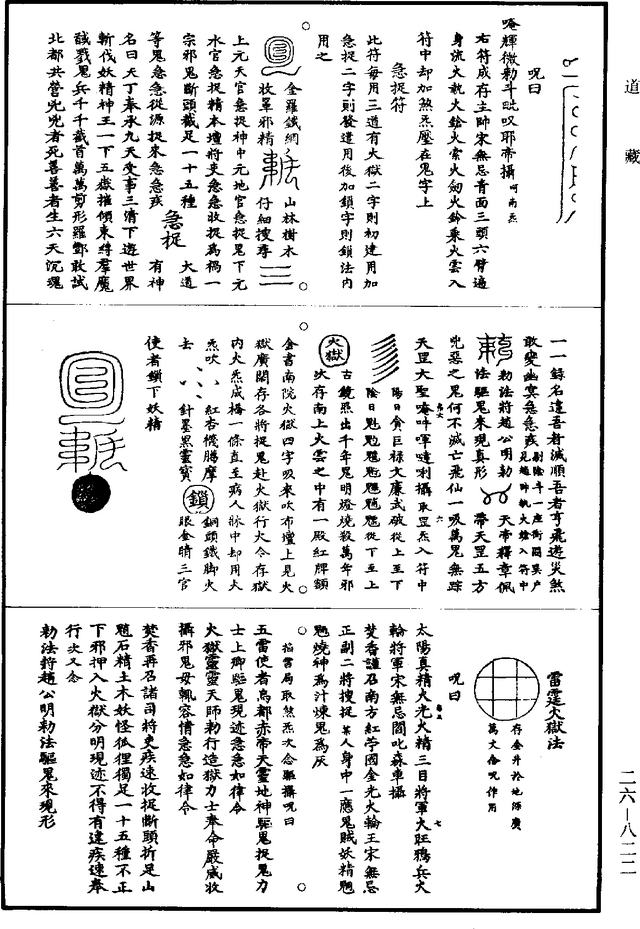 道藏
呪曰
唵輝微勑斗𠯗叹耶帝攝呵南炁
右符咸存主帥宋無忌青面三頭六臂遍
身流火執火鎗火索火劒火鈴乘火雲入
符中却加煞炁壓在鬼字上
急捉符
此符每用三道有火獄二字則初建用加
急捉二字則發遣用後加鎖字則鎖法内
用之
金羅鐵網 山林樹木
收罩邪精 仔細搜尋
上元天官急捉神中元地官急捉鬼下元
水官急捉精本壇將吏急急收捉爲禍一
宗邪鬼斷頭截足一十五種 大道
等鬼急急從源捉來急急疾 急捉 有神
名曰天丁奉承九天受事三清下遊世界
斬伐妖精神王一下五嶽摧傾束縛羣魔
馘戮鬼兵千千截首萬萬剪形羅酆敢試
北都共營兇兇者死善善者生六天沉魂
一一錄名違吾者滅順吾者亨飛遊災煞
敢變幽冥急急疾
勑法將趙公明勑 天帝釋章佩
法驅鬼來現真形 帶天罡五方
兇惡之鬼何不滅亡飛仙一吸萬鬼無踪
天罡大聖唵吽㖇噠唎攝取罡炁入符中
陽日貪巨祿文廉武破從上至下
陰日魁𩲃𩵄魓𩳐䰢魒從下至上
火獄 古鏡照出千年鬼明燈燒殺萬年邪
次存南上火雲之中有一殿紅牌額
金書南院火獄四字吸來吹布壇上見火
獄廣闊存各將捉鬼赴火獄行火令存獄
内火炁成橋一條直至病人脉中却用火
炁吹 紅杏機腸摩 鎖 銅頭鐵脚火
去 針墨黑靈寶 眼金睛三官
使者鎖下妖精
雷霆火獄法
存金井於地深廣
萬丈念呪作用
呪曰
太陽真精火光火精三目將軍火旺鴉兵火
輪將軍宋無忌閻叱森車攝
焚香謹召南方紅苧國金光火輪王宋無忌
正副二將搜捉某人身中一應鬼賊妖精魍
魎燒神爲汁煉鬼爲灰
掐雷局取煞炁次念驅攝呪曰
五雷使者烏都赤帝天靈地神驅鬼捉鬼力
士上卿驅鬼現迹急急如律令
火獄靈靈天師勑行造獄力士奉命嚴威收
攝邪鬼毋輒容情急急如律令
焚香再召諸司將吏疾速收捉斷頭折足山
魈石精土木妖怪狐狸獨足一十五種不正
下邪押入火獄分明現迹不得有違疾速奉
行次又念
勑法將趙公明勑法驅鬼來現形
二六—八二二